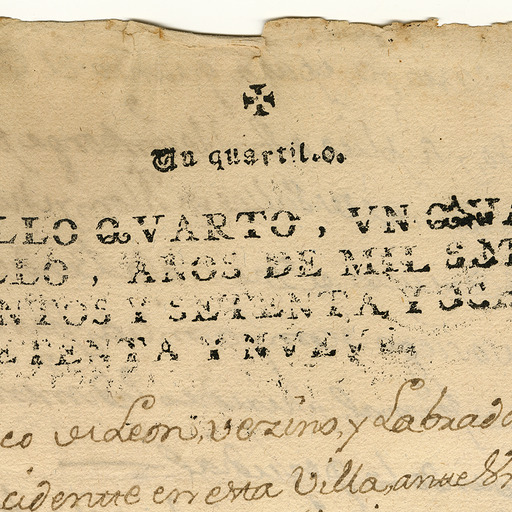 Un quartillo.
LLO QVARTO, VN QVA
LLO, AÑOS DE MIL SET
NTOS Y SETENTA Y OCH
ETENTA Y NVEVE.
co de Leon, vezino, y Labrad
cidente en esta Villa, ante